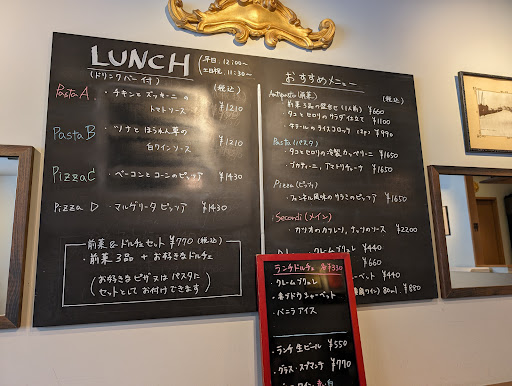 LUNCH
平日. 12:00〜
土日祝. 11:30〜
(ドリンクバー付)
(税込)
Pasta A.
・チキンとズッキーニの
トマトソース
¥1210
Pasta B
・ツナとほうれん草の
白ワインソース
¥1210
Pizza C
・ベーコンとコーンのピッツァ
¥1430
Pizza D
・マルゲリータ ピッツァ
¥1430
前菜&ドルチェセット ¥770 (税込)
・前菜3品+お好きなドルチェ
(お好きなピザ又はパスタに
セットとしてお付けできます)
おすすめメニュー
Antipasto (前菜)
(税込)
・前菜3品の盛合せ(1人前) ¥660
・タコとセロリのサラダ仕立て ¥1100
ライスコロッケ 2ヶ ¥990
Pasta (パスタ)
・タコとセロリの冷製カッペリーニ ¥1650
・ブカティーニ, アマトリチャーナ ¥1650
Pizza (ピッツァ)
・フェンネル風味のサラミのピッツァ ¥1650
Secondi (メイン)
・カツオのカツレツ, ナッツのソース ¥2200
クレームブリュレ ¥440
¥660
ーベット ¥440
ワイン) 80ml. ¥880
ランチドルチェ 各¥330
・クレームブリュレ
・赤ブドウシャーベット
・バニラアイス
・ランチ生ビール ¥550
・グラス・スプマンテ ¥770